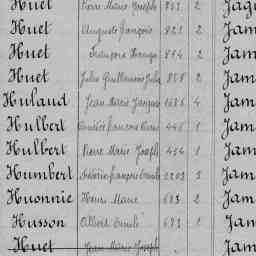 Huet Pierre Marie Joseph 831 2 Jag
Huet Auguste François 821 2 Jam
Huet François 814 2 Jam
Huet Jules Guillaume 858 2 Jam
Hulaud Jean Marie Jacques 1686 4 Jam
Hulbert François 446 1 Jam
Hulbert Pierre Marie Joseph 454 1 Jam
Humbert François 2203 5 Jam
Huonnic Henri Marie 683 2 Jam
Husson Albert Emile 693 2 Jam
Huet Jean Marie Joseph Jam